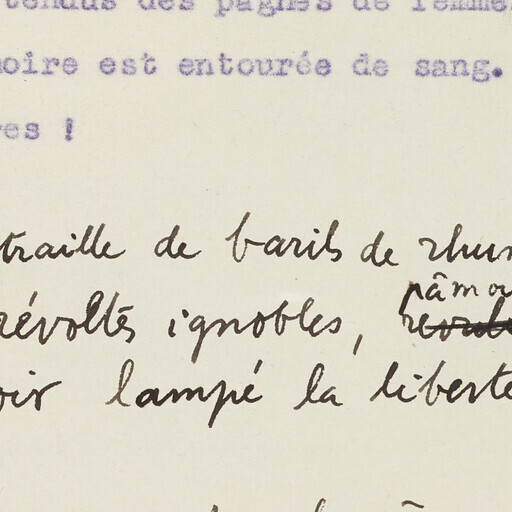 tendus des pagnes de femme
noire est entourée de sang.
res !
traille de barils de rhum
révoltes ignobles, pâmo
oir lampé la liberté